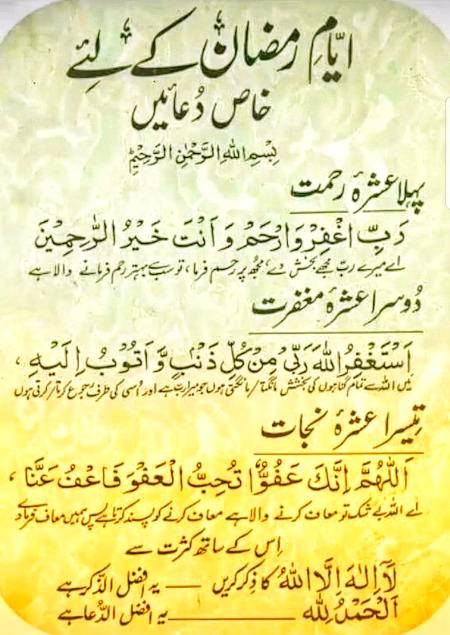 ایّامِ رمضان کے لئے
خاص دُعائیں
بِسْمِ اللهِ الرَّحْمٰنِ الرَّحِيْمِ
پہلا عشرۂ رحمت
رَبِّ اغْفِرْ وَارْحَمْ وَ اَنْتَ خَيْرُ الرّٰحِمِيْنَ
اے میرے رب مجھے بخش دے، مجھ پر رحم فرما، تو سب سے بہتر رحم فرمانے والا ہے
دُوسرا عشرۂ مغفرت
اَسْتَغْفِرُ اللهَ رَبِّىْ مِنْ كُلِّ ذَنْۢبٍ وَّ اَتُوْبُ اِلَيْهِ ،
میں اللہ سے تمام گناہوں کی بخشش مانگتا / مانگتی ہوں جو میرا رب ہے اور اُسی کی طرف رجوع کرتا / کرتی ہوں
تیسرا عشرۂ نجات
اَللّٰهُمَّ اِنَّكَ عَفُوٌّ تُحِبُّ الْعَفْوَ فَاعْفُ عَنَّا ،
اے اللہ بے شک تو معاف کرنے والا ہے معاف کرنے کو پسند کرتا ہے پس ہمیں معاف فرما دے
اِس کے ساتھ کثرت سے
لَآ اِلٰهَ اِلَّا اللهُ کا ذِکر کریں —— یہ افضل الذِّکر ہے
اَلْحَمْدُ لِلّٰهِ —————— یہ افضل الدُّعا ہے